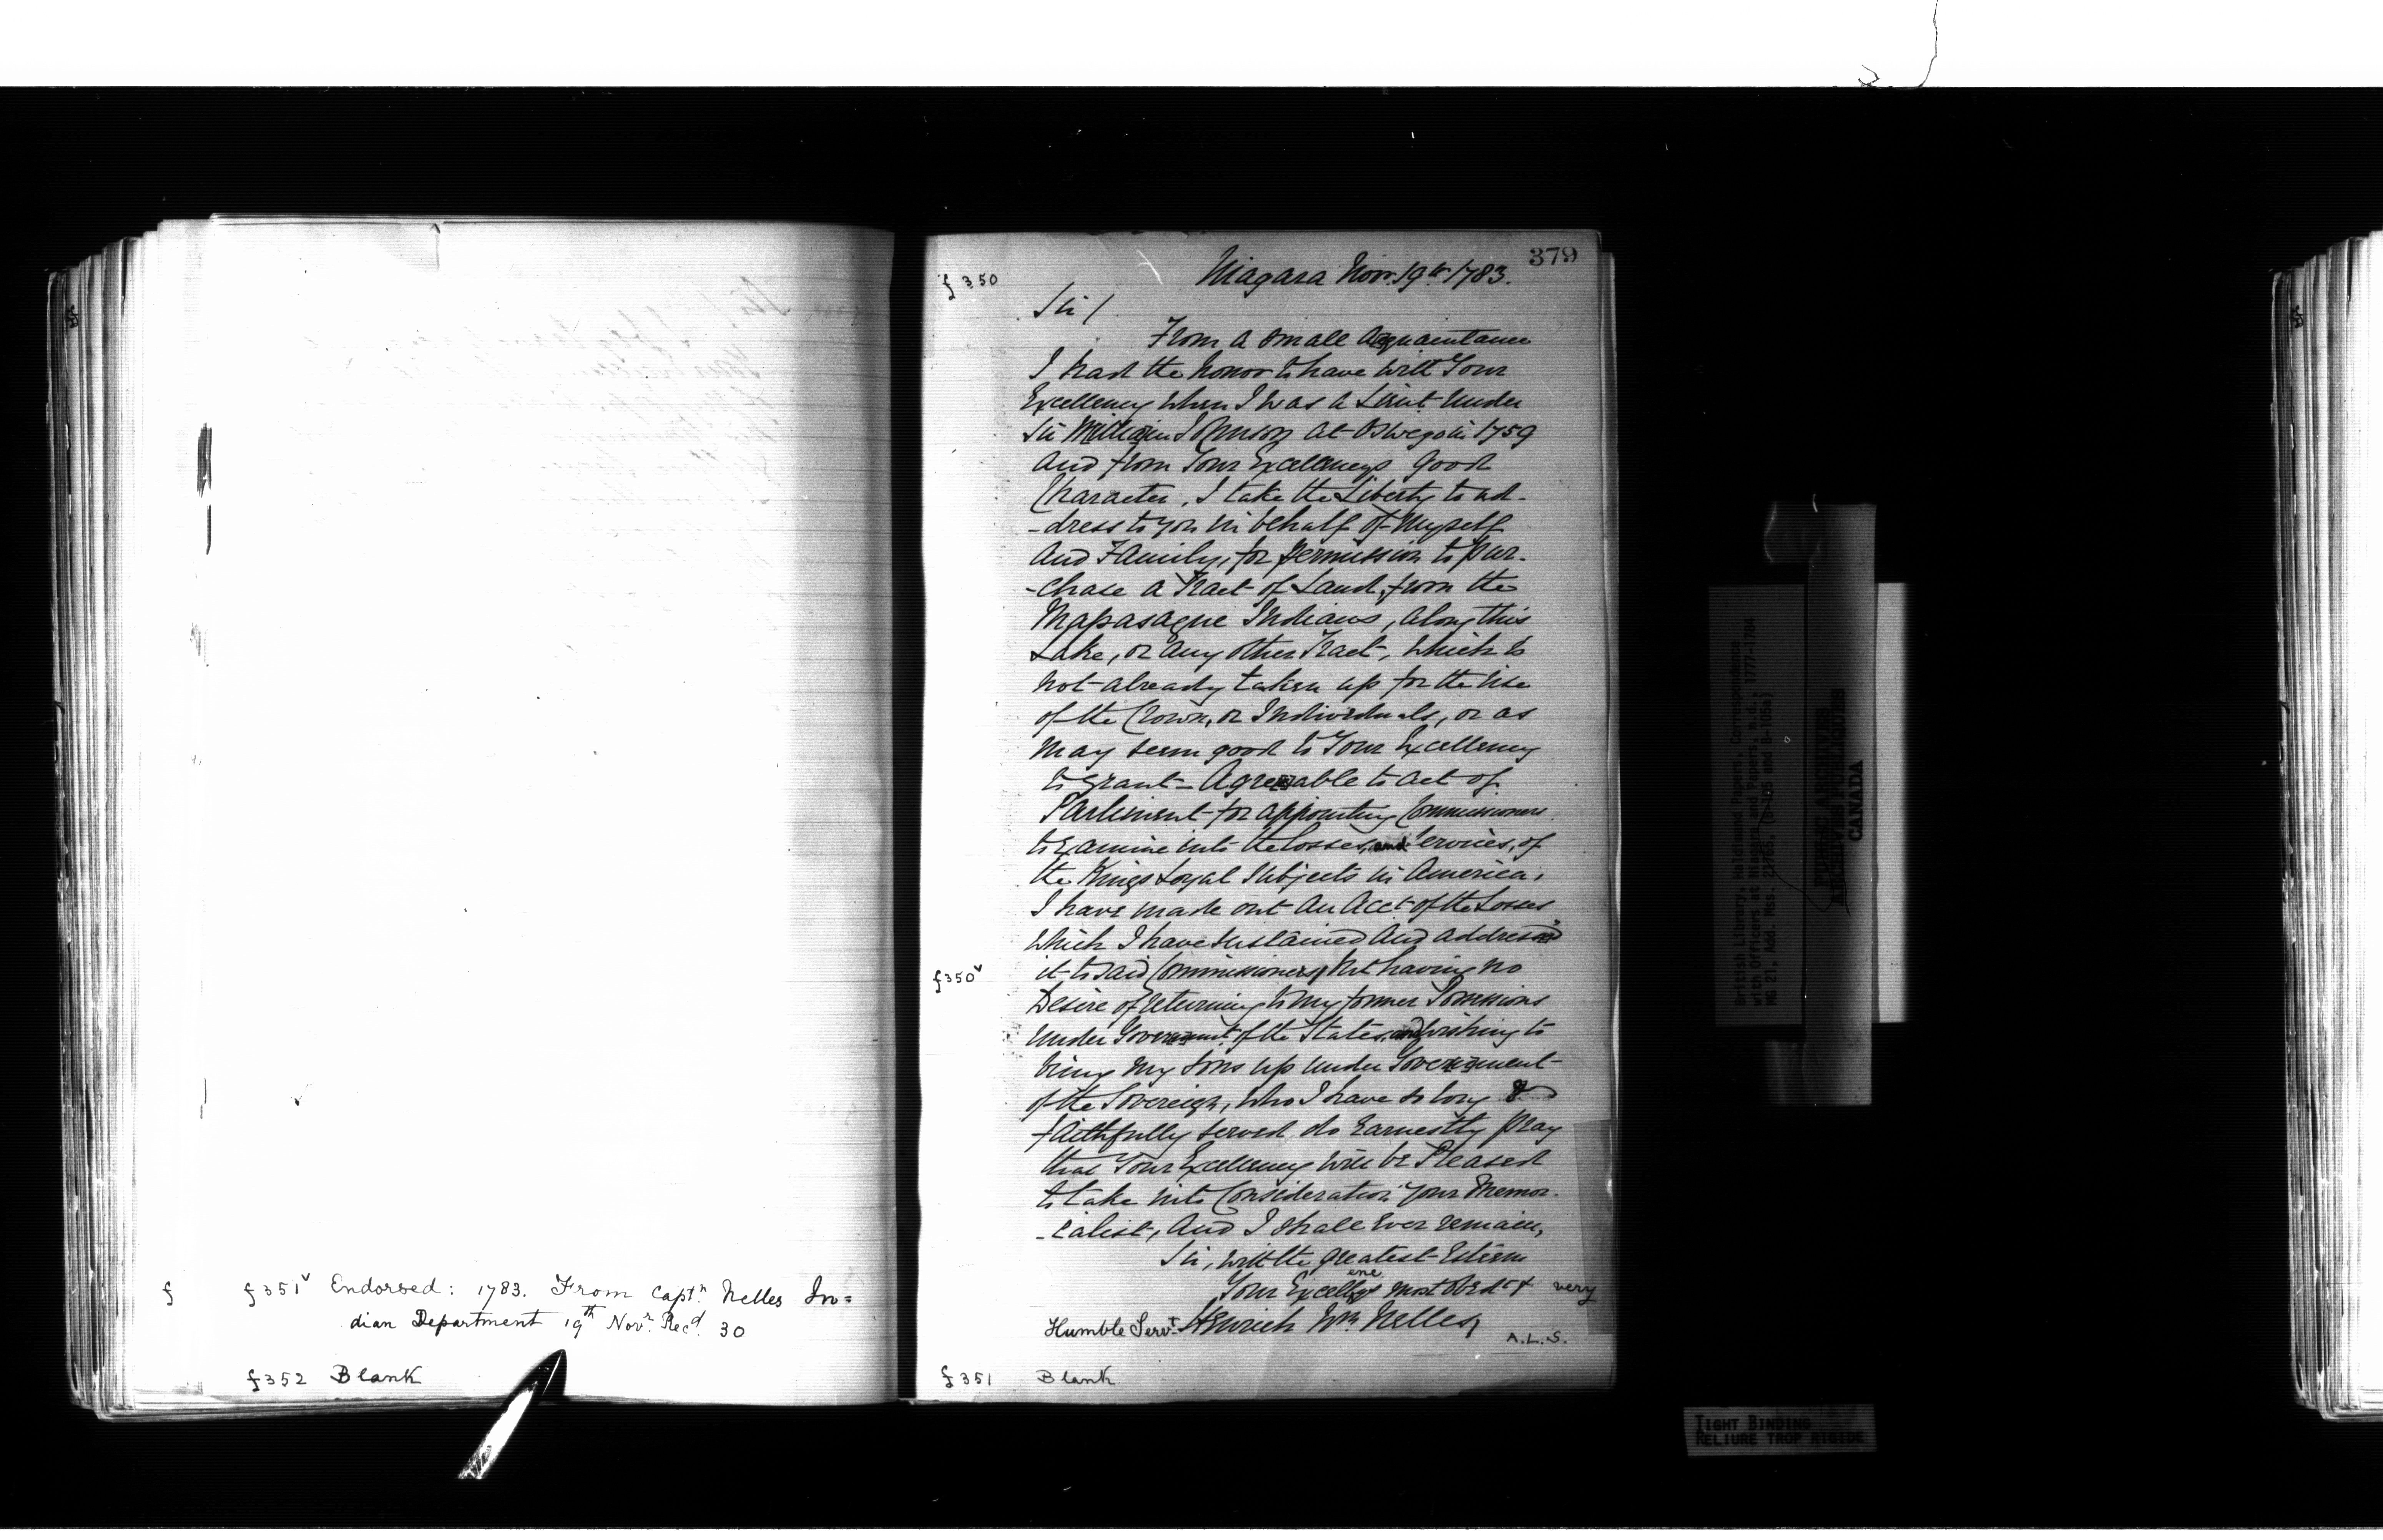 f 351v Endorsed: 1783. From Captn. Nelles In=
dian Department 19th Novr. Recd. 30
f 352 Blank
379
f 350
Niagara Novr. 19th 1783.
Sir /
From a small Acquaintance
I had the honor to have with Your
Excellency when I was a Lieut. under
Sir William Johnson at Oswego in 1759
and from Your Excellencys good
Character, I take the Liberty to ad-
-dress to you in behalf of Myself
and Family, for permission to pur-
-chase a Tract of Land, from the
Mapasague Indians, along this
Lake, or any other Tract, which is
not already taken up for the use
of the Crown, or Individuals, or as
may seem good to Your Excellency
to grant - Agreeable to act of
Parliment for appointing Commissioners
to Examine into the Losses, and Services, of
the Kings Loyal Subjects in America,
I have made out an Acct of the Losses
which I have sustained and addressed
f 350v
it to said Commissioners, but having no
Desire of returning to my former Possessions
under Government of the States, and wishing to
bring my sons up under Government
of the Sovereign, who I have so long &
faithfully served do Earnestly pray
that Your Excellency will be Pleased
to take into Consideration your Memor-
-ialist, And I shall ever remain,
Sir, with the greatest Esteem
Your Excellency's most Obedt & very
Humble Servt. Henrich Wm. Nelles,
A.L.S.
f 351 Blank
British Library, Haldimand Papers, Correspondence
with Officers at Niagara and Papers, n.d., 1777-1784
MG 21, Add. Mss. 21765, (B-105 and B-105a)
PUBLIC ARCHIVES
ARCHIVES PUBLIQUES
CANADA
TIGHT BINDING
RELIURE TROP RIGIDE